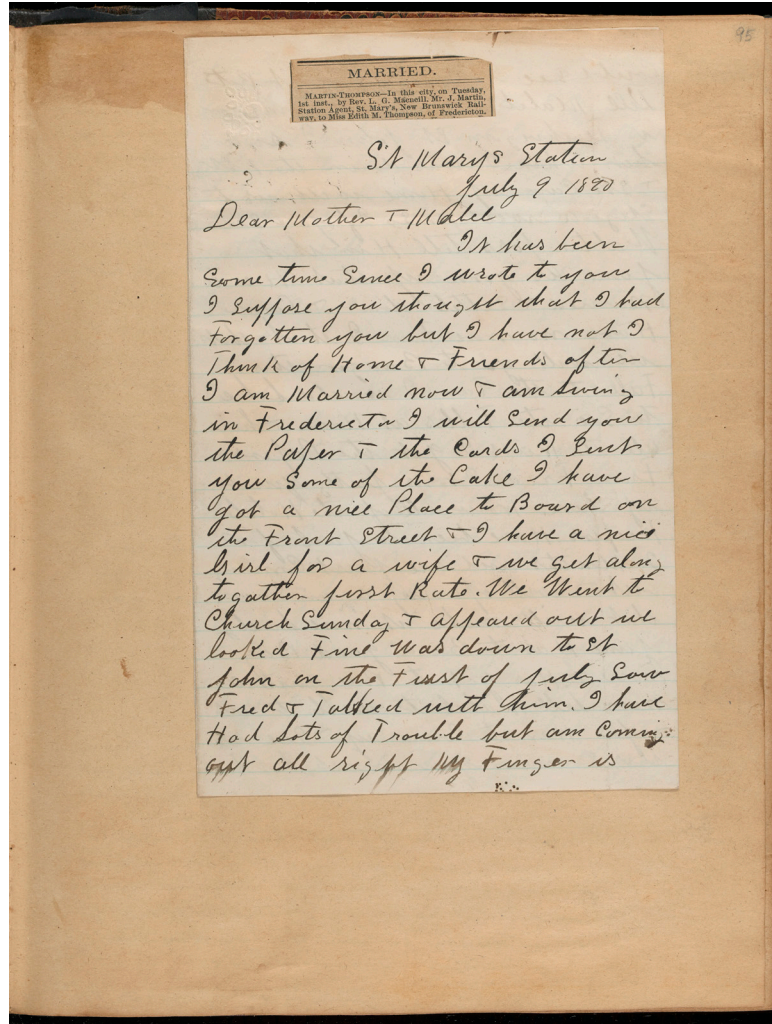 95
MARRIED.
MARTIN-THOMPSON—In this city, on Tuesday,
1st inst., by Rev. L. G. Macneill, Mr. J. Martin,
Station Agent, St. Mary's, New Brunswick Rail-
way, to Miss Edith M. Thompson, of Fredericton.
St Marys Station
July 9 1890
Dear Mother & Mabel
It has been
Some time Since I wrote to you
I Suppose you thought that I had
Forgotten you but I have not I
Think of Home & Friends often
I am Married now & am living
in Fredericton I will Send you
the Paper & the Cards I Sent
you Some of the Cake I have
got a nice Place to Board on
the Front Street & I have a nice
Girl for a wife & we get along
togather first Rate. We Went to
Church Sunday & appeared out we
looked Fine Was down to St
John on the First of July Saw
Fred & Talked with him. I have
Had Lots of Trouble but am Coming
out all right My Finger is